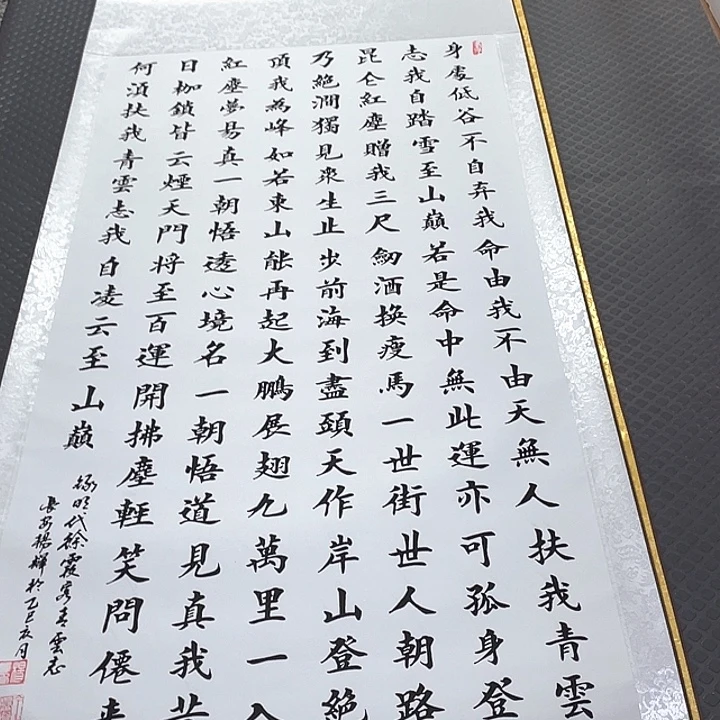 身處低谷不自弃我命由我不由天無人扶我青雲
志我自踏雪至山巔若是命中無此運亦可孤身登
昆仑紅塵贈我三尺劒酒換瘦馬一世街世人朝路
乃絕澗獨見衆生止步前海到盡頭天作岸山登絕
頂我為峰如若東山能再起大鵬展翅九萬里一入
紅塵夢易真一朝悟透心境名一朝悟道見真我昔
日枷鎖皆云煙天門將至百運開拂塵輕笑問僊來
何須扶我青雲志我自凌云至山巔
錄明代徐霞客青雲志
長安楊輝於乙巳月